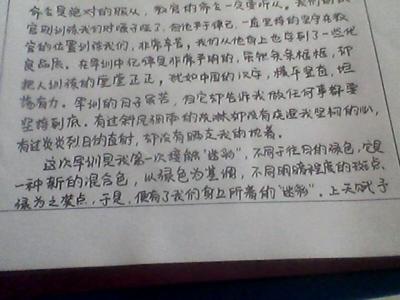 命令是绝对的服从，教官的命令一定要听从。我们的教
官别训练我们时嗓子哑了，但他严于律己，一直坚持的坚守在教
官的位置训练我们，非常辛苦，我们从他身上也学到了一些优
良品质。在军训中纪律是非常严明的，条条框框，却
把人训练的堂堂正正，犹如中国的汉字，横平竖直，坦
荡有力。军训的日子虽苦，但它却告诉我做任何事都要
坚持到底。有过斜风细雨的泼淋都没有浇湿我坚韧的心，
有过炎炎烈日的直射，却没有晒去我的执着。
这次军训是我第一次接触“迷彩”，不同于往日的绿色，它是
一种新的混合色，以绿色为基调，不同明暗程度的斑点、
绿为之装点，于是，便有了我们身上所着的“迷彩”。上天赋予